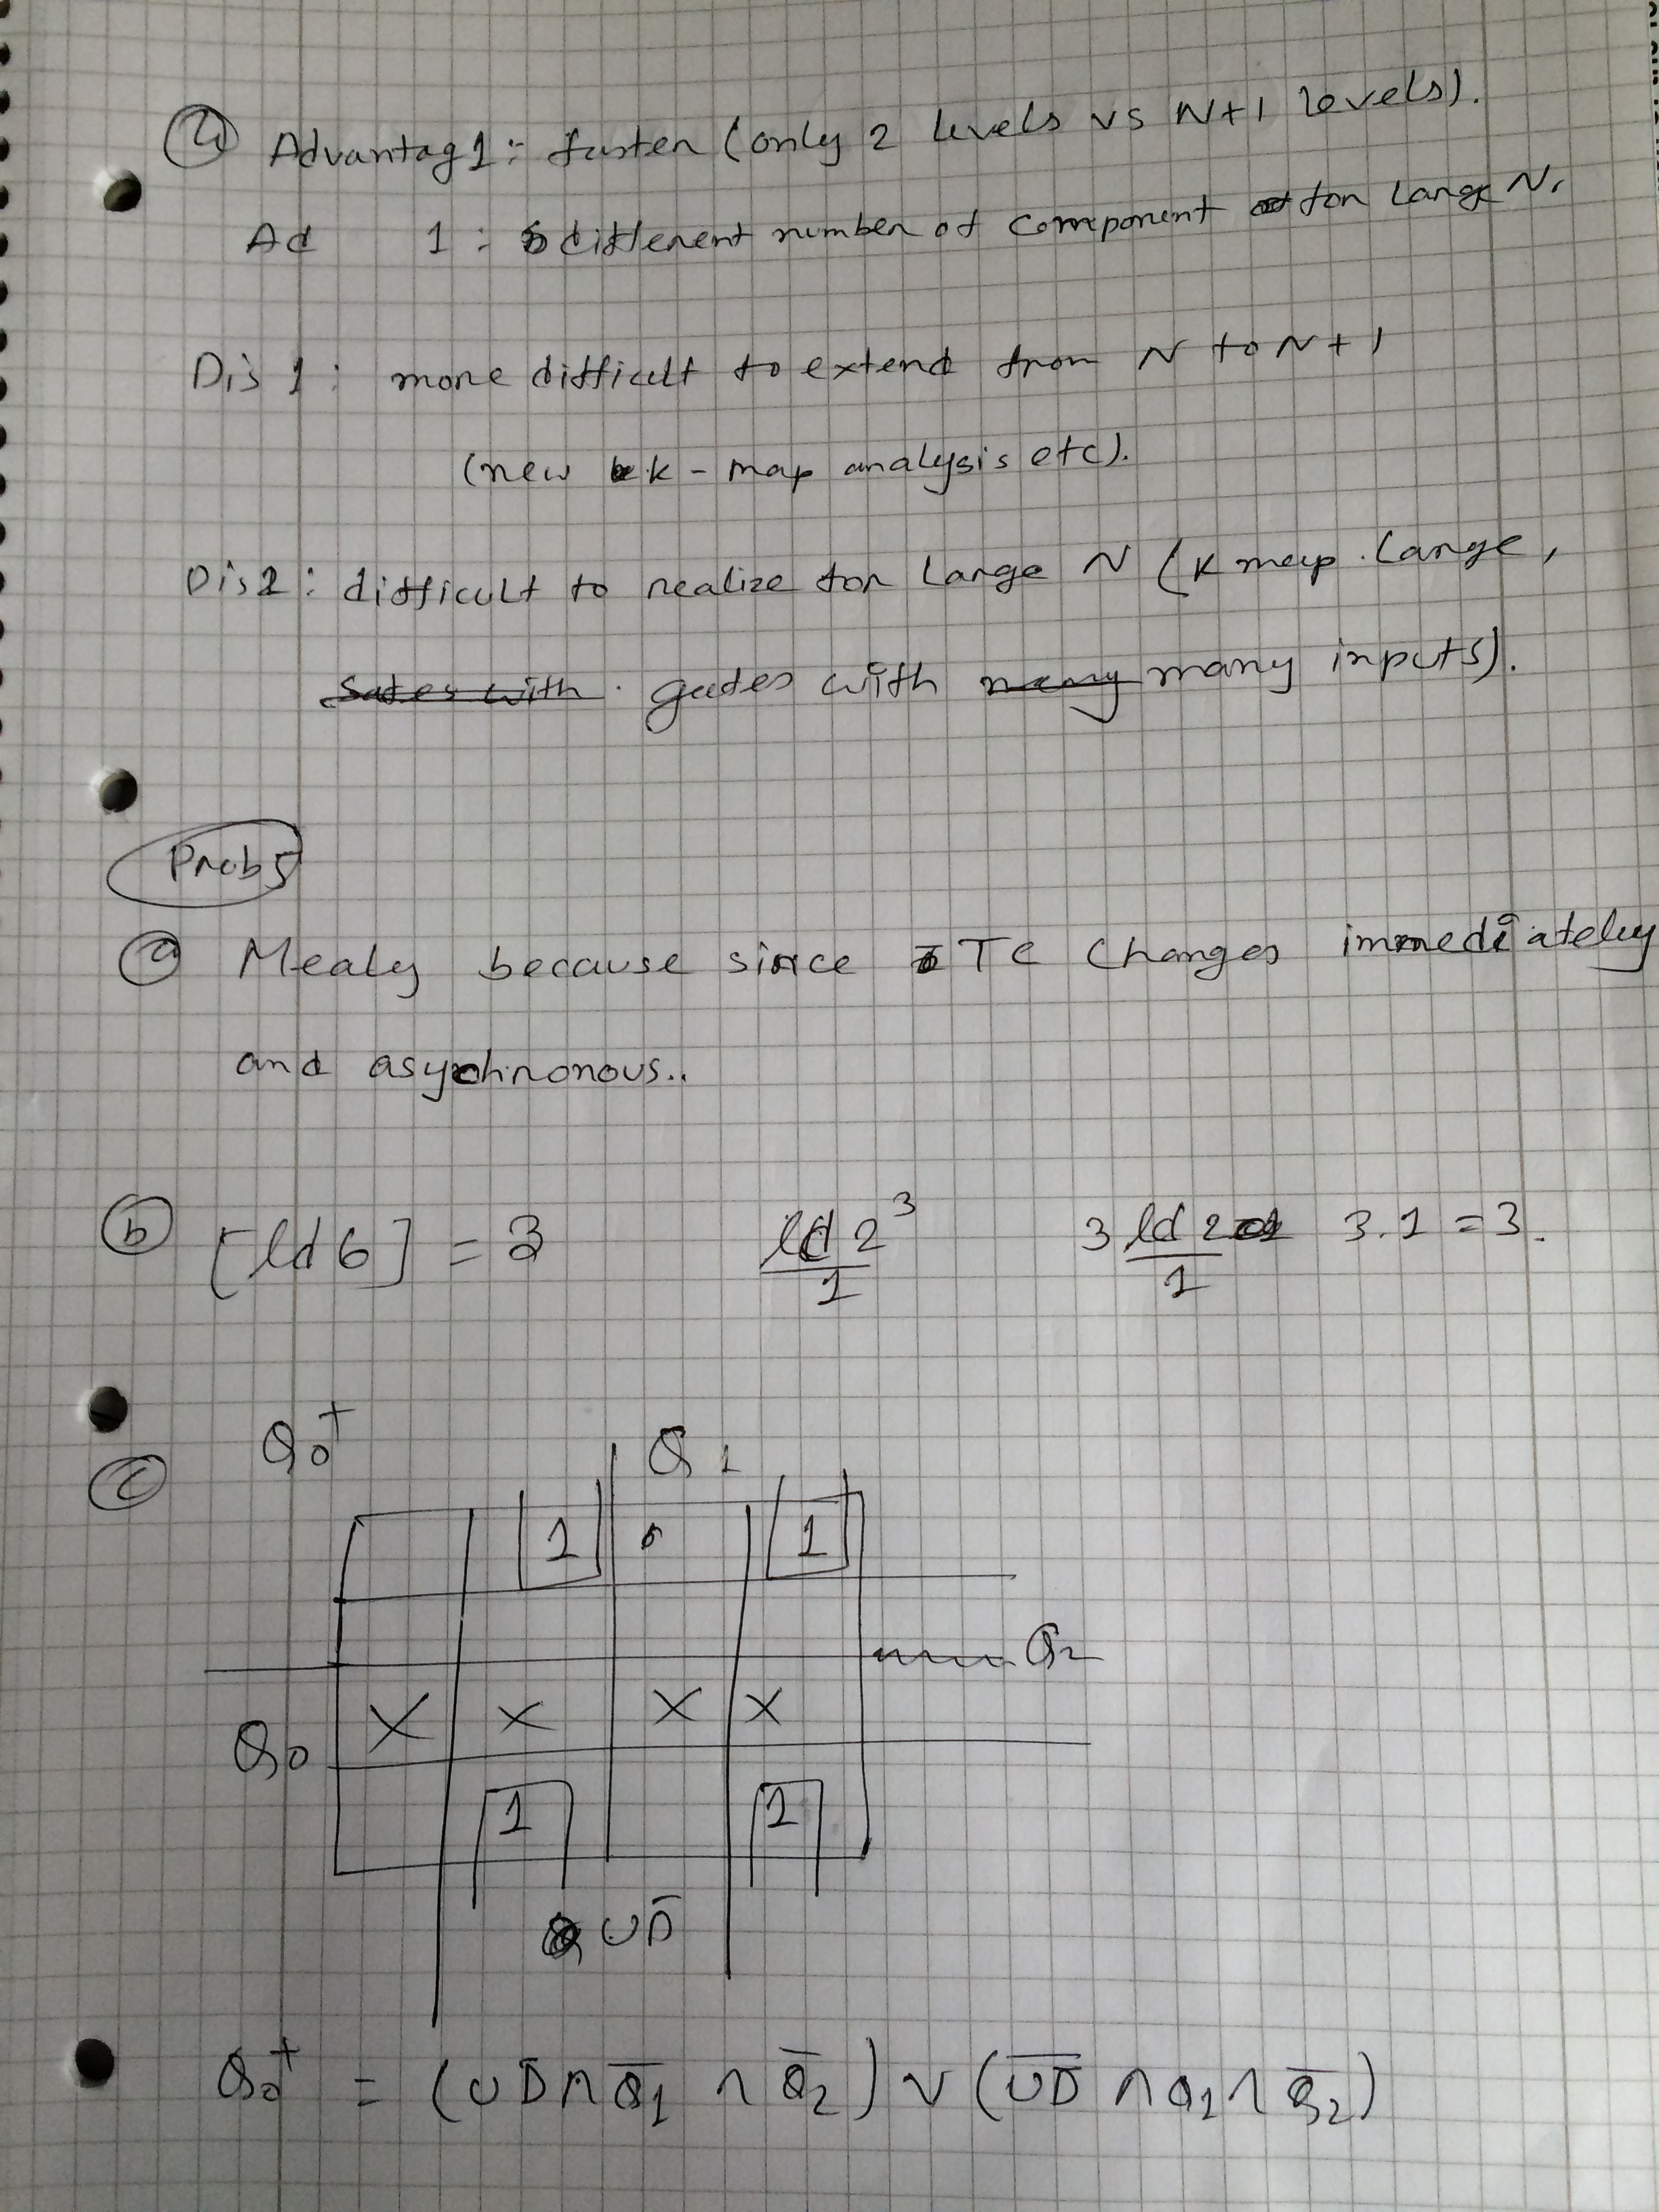 d Advantag 1: faster (only 2 levels vs N+1 levels).
Ad 1: different number of component for Large N.
Dis 1: more difficult to extend from N to N+1
(new k-map analysis etc).
Dis 2: difficult to realize for Large N (K map Large,
gates with many inputs).
Prob 5
a Mealy because since TC changes immediately
and asychronous..
b ⌈ld 6⌉ = 3 ld 2³ 3 ld 2 3.1 = 3.
1 1
c Q₀⁺ Q₁
1 1
Q₂
X X X X
Q₀
1 1
UD̄
Q₀⁺ = (UD̄ ∧ Q̄₁ ∧ Q̄₂) ∨ (\overline{UD̄} ∧ Q₁ ∧ Q̄₂)